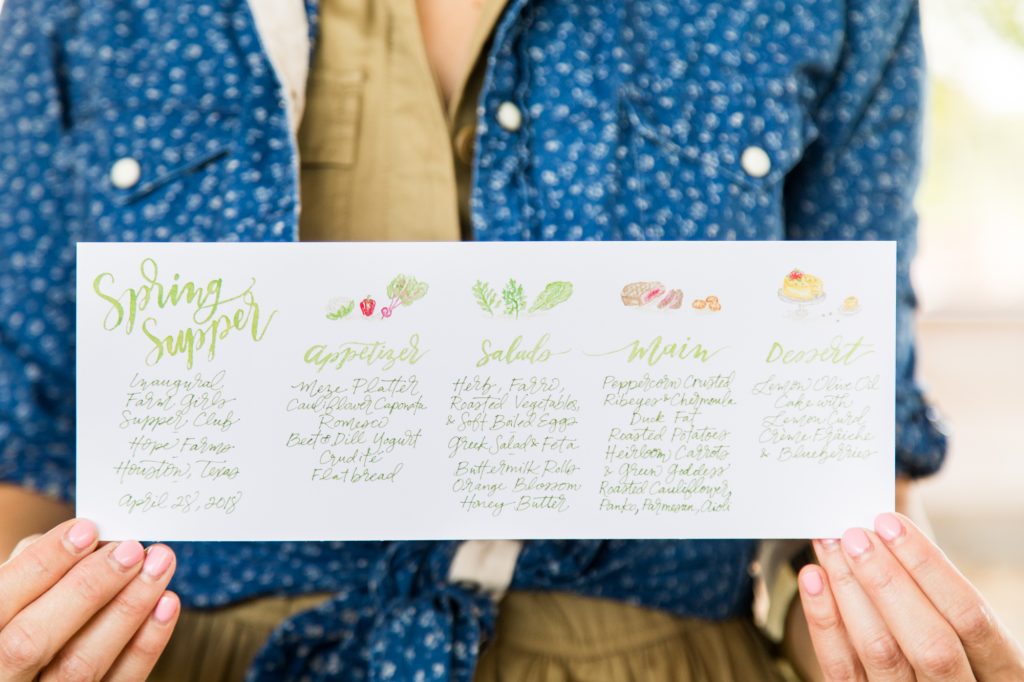 Spring
Supper
Inaugural
Farm Girls
Supper Club
Hope Farms
Houston, Texas
April 28, 2018
Appetizer
Meze Platter
Cauliflower Caponata
Romesco
Beet & Dill Yogurt
Crudité
Flatbread
Salads
Herb, Farro,
Roasted Vegetables,
& Soft Boiled Eggs
Greek Salad & Feta
Buttermilk Rolls
Orange Blossom
Honey Butter
Main
Peppercorn Crusted
Ribeyes & Chermoula
Duck Fat
Roasted Potatoes
Heirloom Carrots
& Green Goddess
Roasted Cauliflower,
Panko, Parmesan, Aioli
Dessert
Lemon Olive Oil
Cake with
Lemon Curd,
Crème Fraîche
& Blueberries